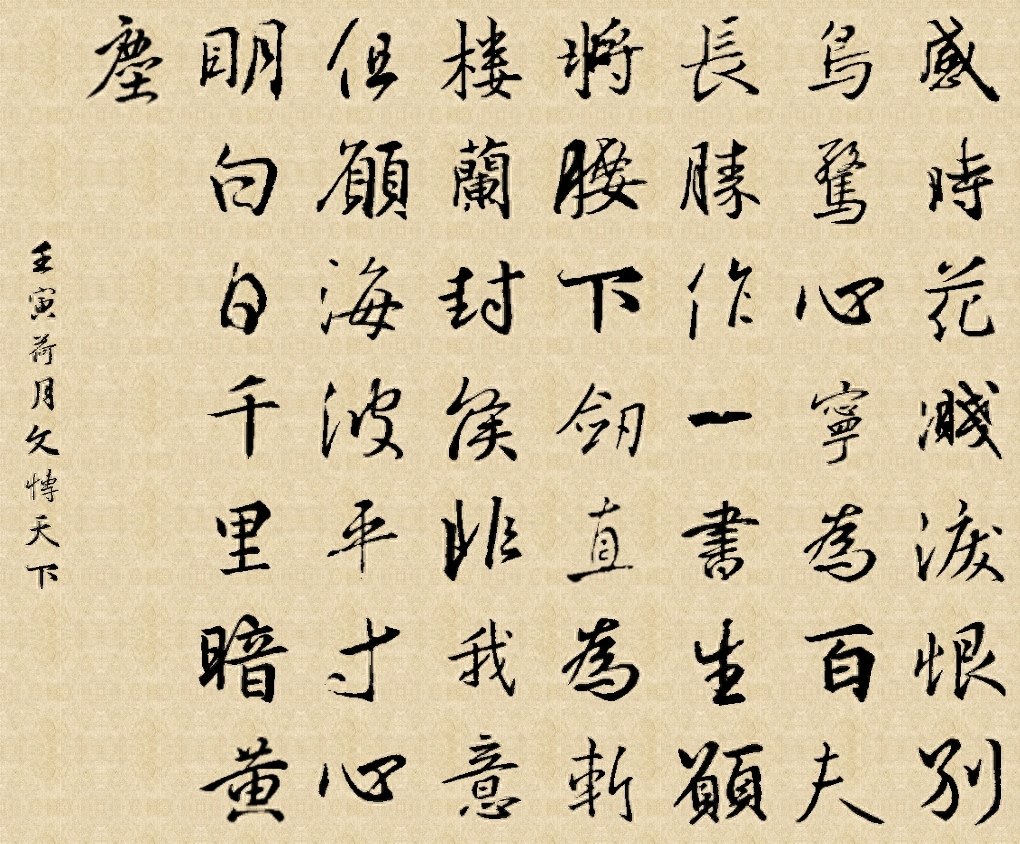 感時花濺淚恨別
鳥驚心寧為百夫
長勝作一書生願
將腰下劍直為斬
樓蘭封侯非我意
但願海波平寸心
明向白千里暗黃
塵
壬寅荷月文博天下